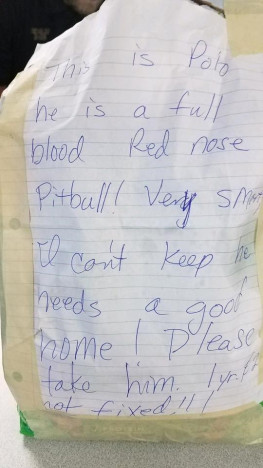 This is Polo
he is a full
blood Red nose
Pitbull! Very
I can't keep he
needs a good
home! Please
take him. 1yr.
not fixed!!!